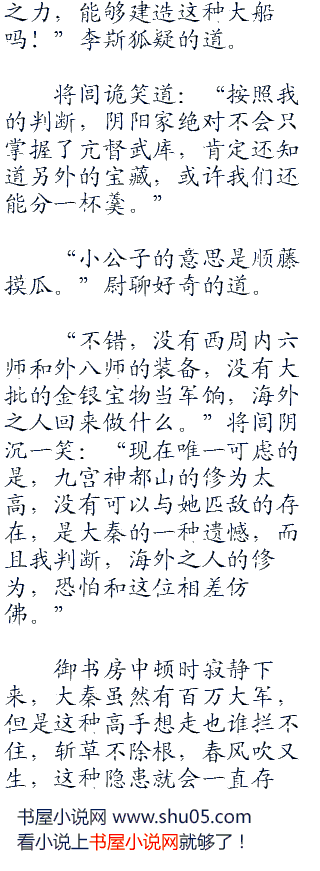 之力，能够建造这种大船
吗！”李斯狐疑的道。
将闾诡笑道：“按照我
的判断，阴阳家绝对不会只
掌握了亢督武库，肯定还知
道另外的宝藏，或许我们还
能分一杯羹。”
“小公子的意思是顺藤
摸瓜。”尉聊好奇的道。
“不错，没有西周内六
师和外八师的装备，没有大
批的金银宝物当军饷，海外
之人回来做什么。”将闾阴
沉一笑：“现在唯一可虑的
是，九宫神都山的修为太
高，没有可以与她匹敌的存
在，是大秦的一种遗憾，而
且我判断，海外之人的修
为，恐怕和这位相差仿
佛。”
御书房中顿时寂静下
来，大秦虽然有百万大军，
但是这种高手想走也谁拦不
住，斩草不除根，春风吹又
生，这种隐患就会一直存
书屋小说网 www.shu05.com
看小说上书屋小说网就够了！